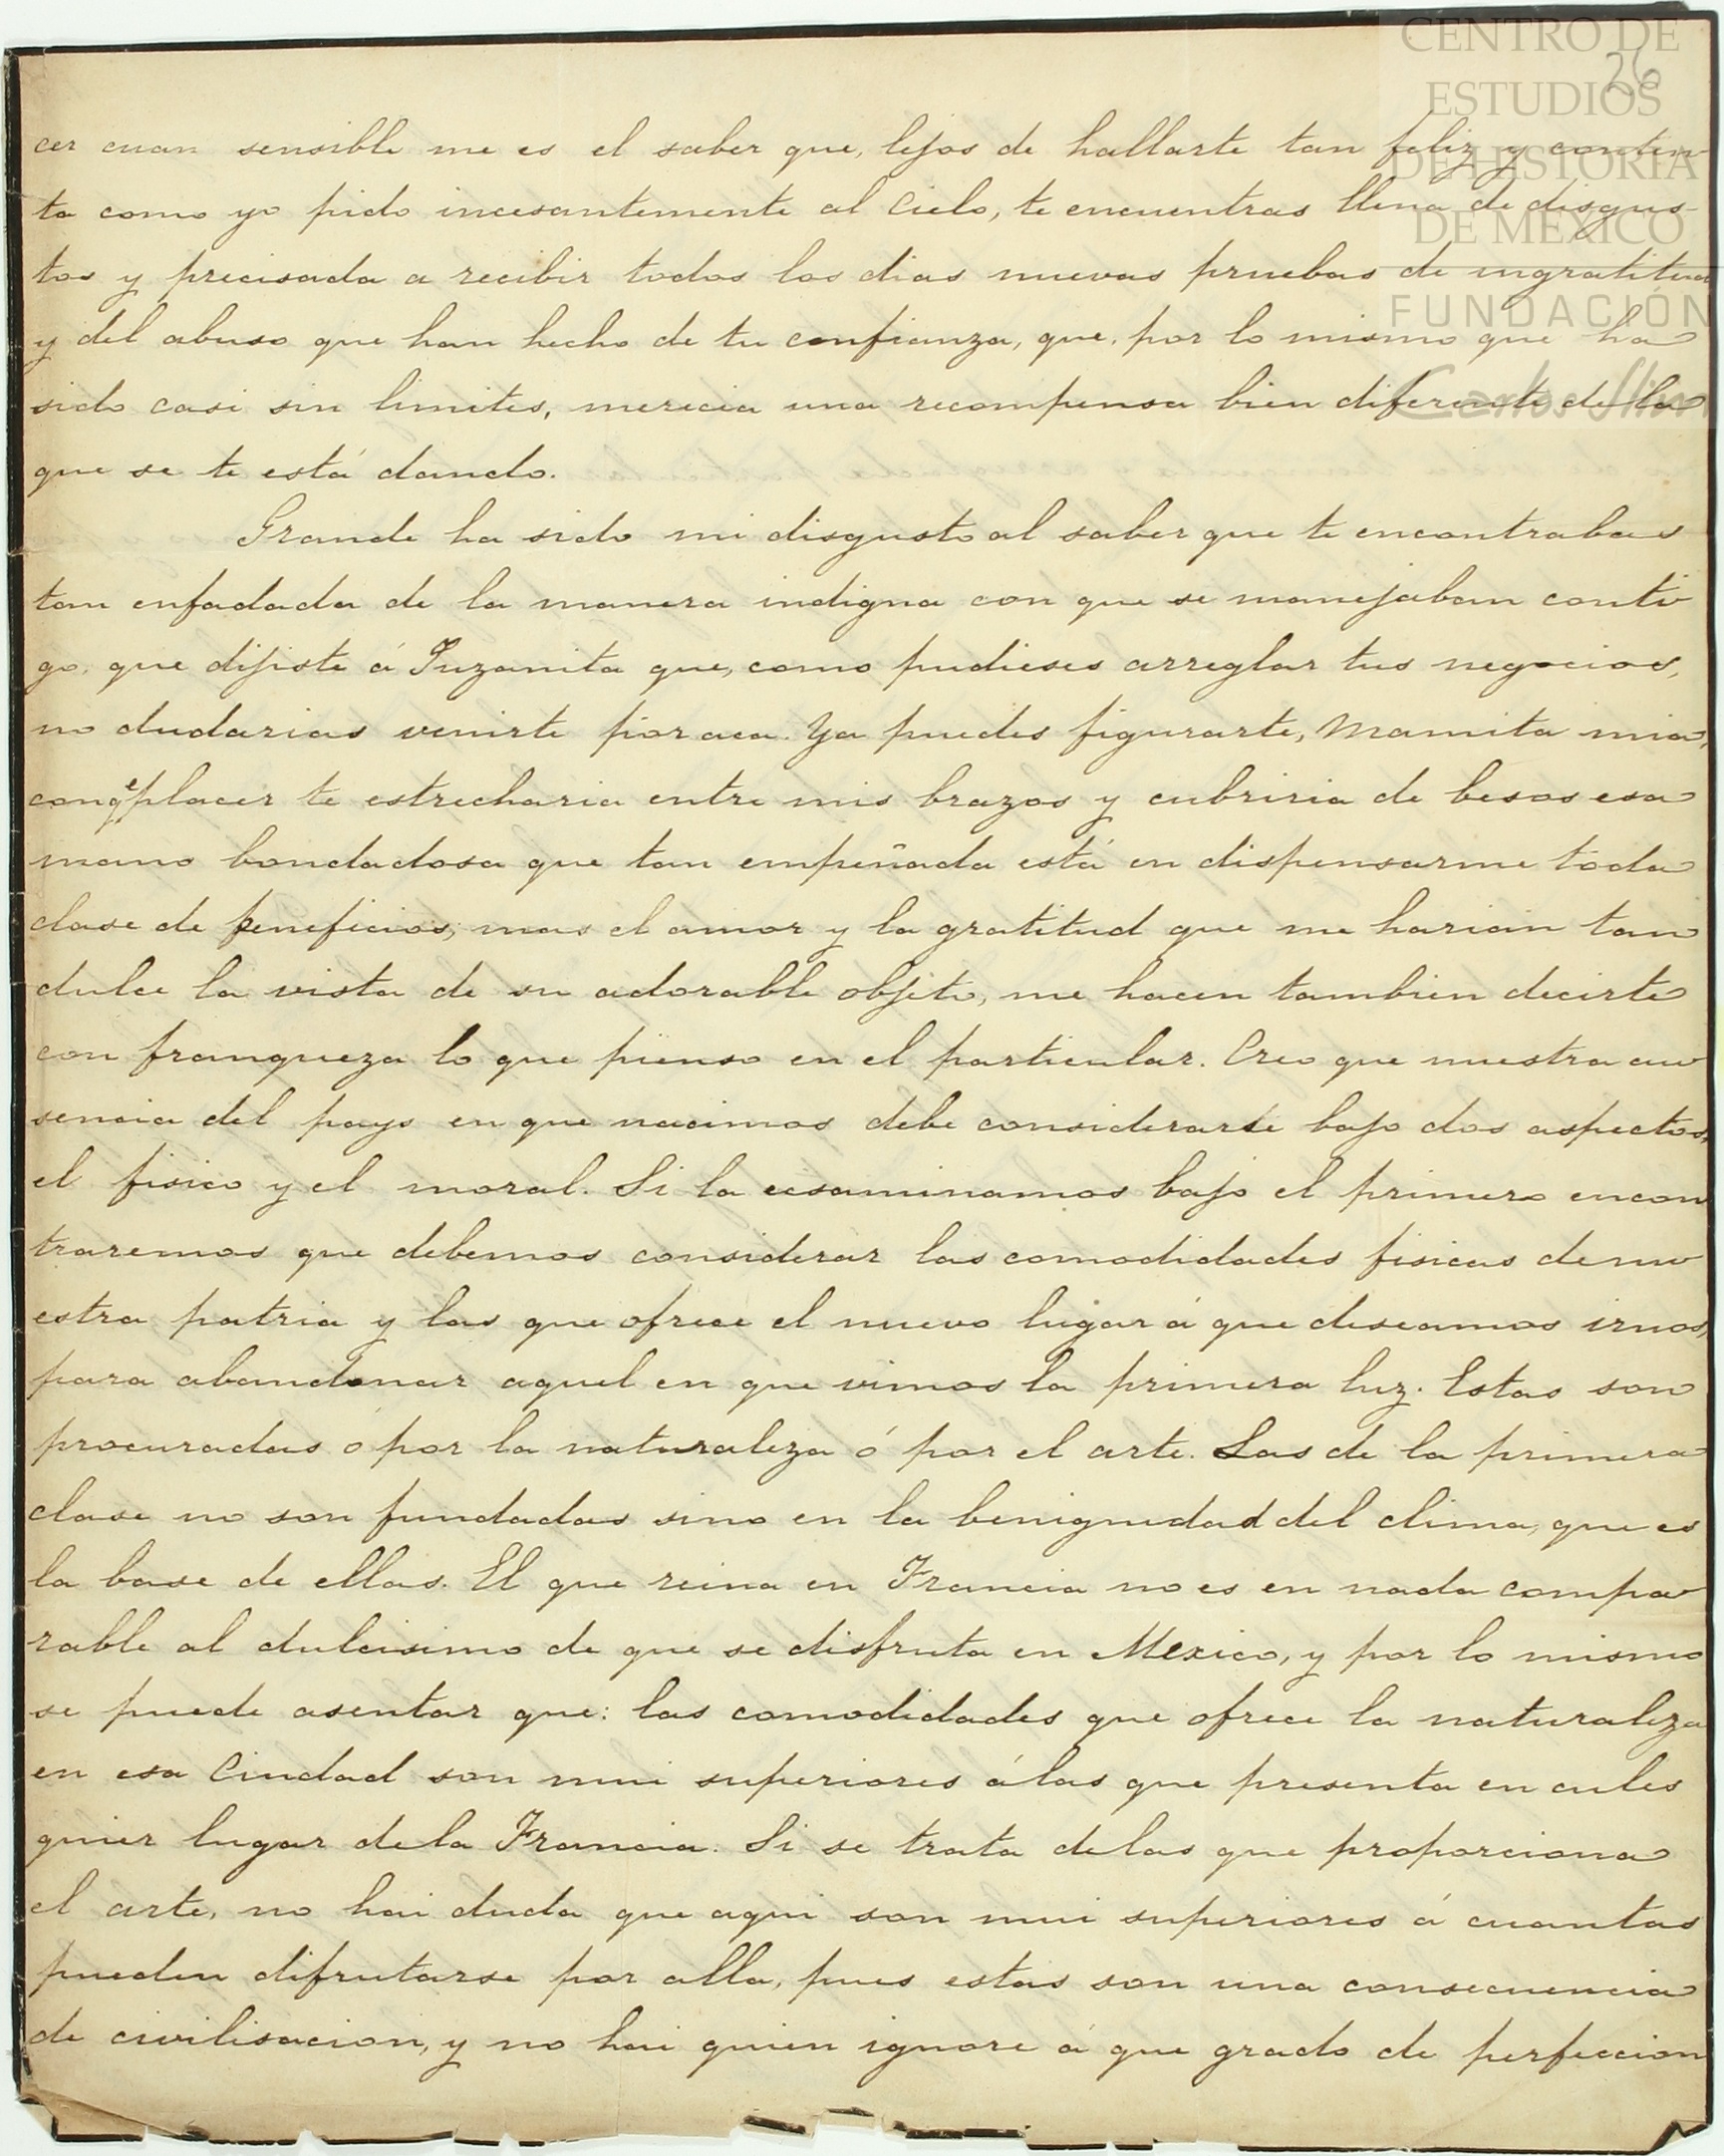 CENTRO DE
ESTUDIOS
DE HISTORIA
DE MEXICO
FUNDACIÓN
Carlos Slim
26
cer cuan sensible me es el saber que, lejos de hallarte tan feliz y conten-
ta como yo pido incesantemente al Cielo, te encuentras llena de disgus-
tos y precisada a recibir todos los dias nuevas pruebas de ingratitud
y del abuso que han hecho de tu confianza, que, por lo mismo que ha
sido casi sin limites, merecia una recompensa bien diferente de la
que se te está dando.
Grande ha sido mi disgusto al saber que te encontrabas
tan enfadada de la manera indigna con que se manejaban conti
go, que dijiste á Suzanita que, como pudieses arreglar tus negocios,
no dudarias venirte por aca. Ya puedes figurarte, Mamita mia,
con qe placer te estrecharia entre mis brazos y cubriria de besos esa
mano bondadosa que tan empeñada está en dispensarme toda
clase de beneficios; mas el amor y la gratitud que me harian tan
dulce la vista de su adorable objeto, me hacen tambien decirte
con franqueza lo que pienso en el particular. Creo que nuestra au
sencia del pays en que nacimos debe considerarse bajo dos aspectos,
el fisico y el moral. Si la ecsaminamos bajo el primero encon
traremos que debemos considerar las comodidades fisicas de nu
estra patria y las que ofrece el nuevo lugar á que deseamos irnos,
para abandonar aquel en que vimos la primera luz. Estas son
procuradas ó por la naturaleza ó por el arte. Las de la primera
clase no son fundadas sino en la benignidad del clima, que es
la base de ellas. El que reina en Francia no es en nada compa
rable al dulcisimo de que se disfruta en Mexico, y por lo mismo
se puede asentar que: las comodidades que ofrece la naturaleza
en esa Ciudad son mui superiores á las que presenta en cules
quier lugar de la Francia. Si se trata de las que proporciona
el arte, no hai duda que aqui son mui superiores á cuantas
pueden difrutarse por alla, pues estas son una consecuencia
de civilisacion, y no hai quien ignore á que grado de perfeccion